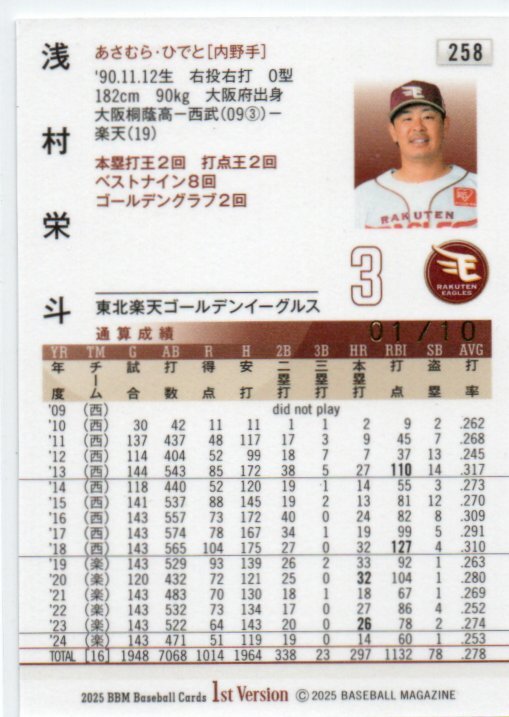 浅村栄斗
258
あさむら・ひでと[内野手]
'90.11.12生　右投右打　O型
182cm　90kg　大阪府出身
大阪桐蔭高－西武(09③)－
楽天(19)
本塁打王2回　打点王2回
ベストナイン8回
ゴールデングラブ2回
RAKUTEN
EAGLES
3
E
RAKUTEN
EAGLES
東北楽天ゴールデンイーグルス
通算成績
01/10
YR TM G AB R H 2B 3B HR RBI SB AVG
年度 チーム 試合 打数 得点 安打 二塁打 三塁打 本塁打 打点 盗塁 打率
'09 (西) did not play
'10 (西) 30 42 11 11 1 1 2 9 2 .262
'11 (西) 137 437 48 117 17 3 9 45 7 .268
'12 (西) 114 404 52 99 18 7 7 37 13 .245
'13 (西) 144 543 85 172 38 5 27 110 14 .317
'14 (西) 118 440 52 120 19 1 14 55 3 .273
'15 (西) 141 537 88 145 19 2 13 81 12 .270
'16 (西) 143 557 73 172 40 0 24 82 8 .309
'17 (西) 143 574 78 167 34 1 19 99 5 .291
'18 (西) 143 565 104 175 27 0 32 127 4 .310
'19 (楽) 143 529 93 139 26 2 33 92 1 .263
'20 (楽) 120 432 72 121 25 0 32 104 1 .280
'21 (楽) 143 483 70 130 18 1 18 67 1 .269
'22 (楽) 143 532 73 134 17 0 27 86 4 .252
'23 (楽) 143 522 64 143 20 0 26 78 2 .274
'24 (楽) 143 471 51 119 19 0 14 60 1 .253
TOTAL [16] 1948 7068 1014 1964 338 23 297 1132 78 .278
2025 BBM Baseball Cards 1st Version ©2025 BASEBALL MAGAZINE